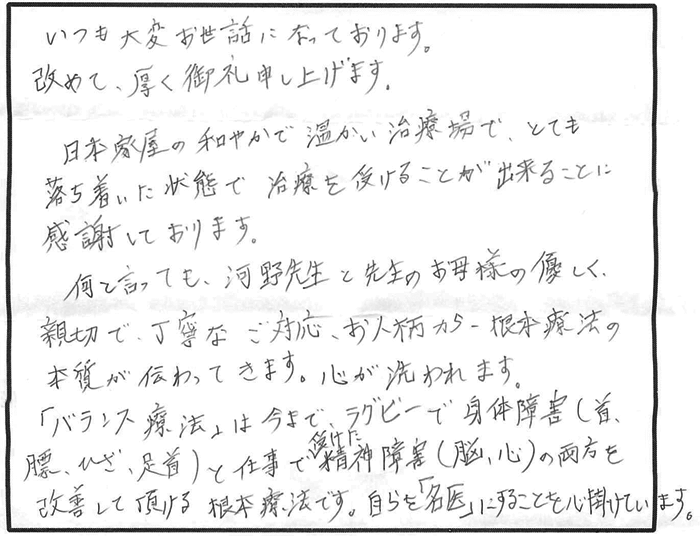 いつも大変お世話になっております。
改めて、厚く御礼申し上げます。
日本家屋の和やかで温かい治療場で、とても
落ち着いた状態で治療を受けることが出来ることに
感謝しております。
何と言っても、河野先生と先生のお母様の優しく、
親切で、丁寧なご対応、お人柄から根本療法の
本質が伝わってきます。心が洗われます。
「バランス療法」は今まで、ラグビーで身体障害(首、
腰、ひざ、足首)と仕事で受けた精神障害(脳、心)の両方を
改善して頂ける根本療法です。自らを「名医」にすることを心掛けています。